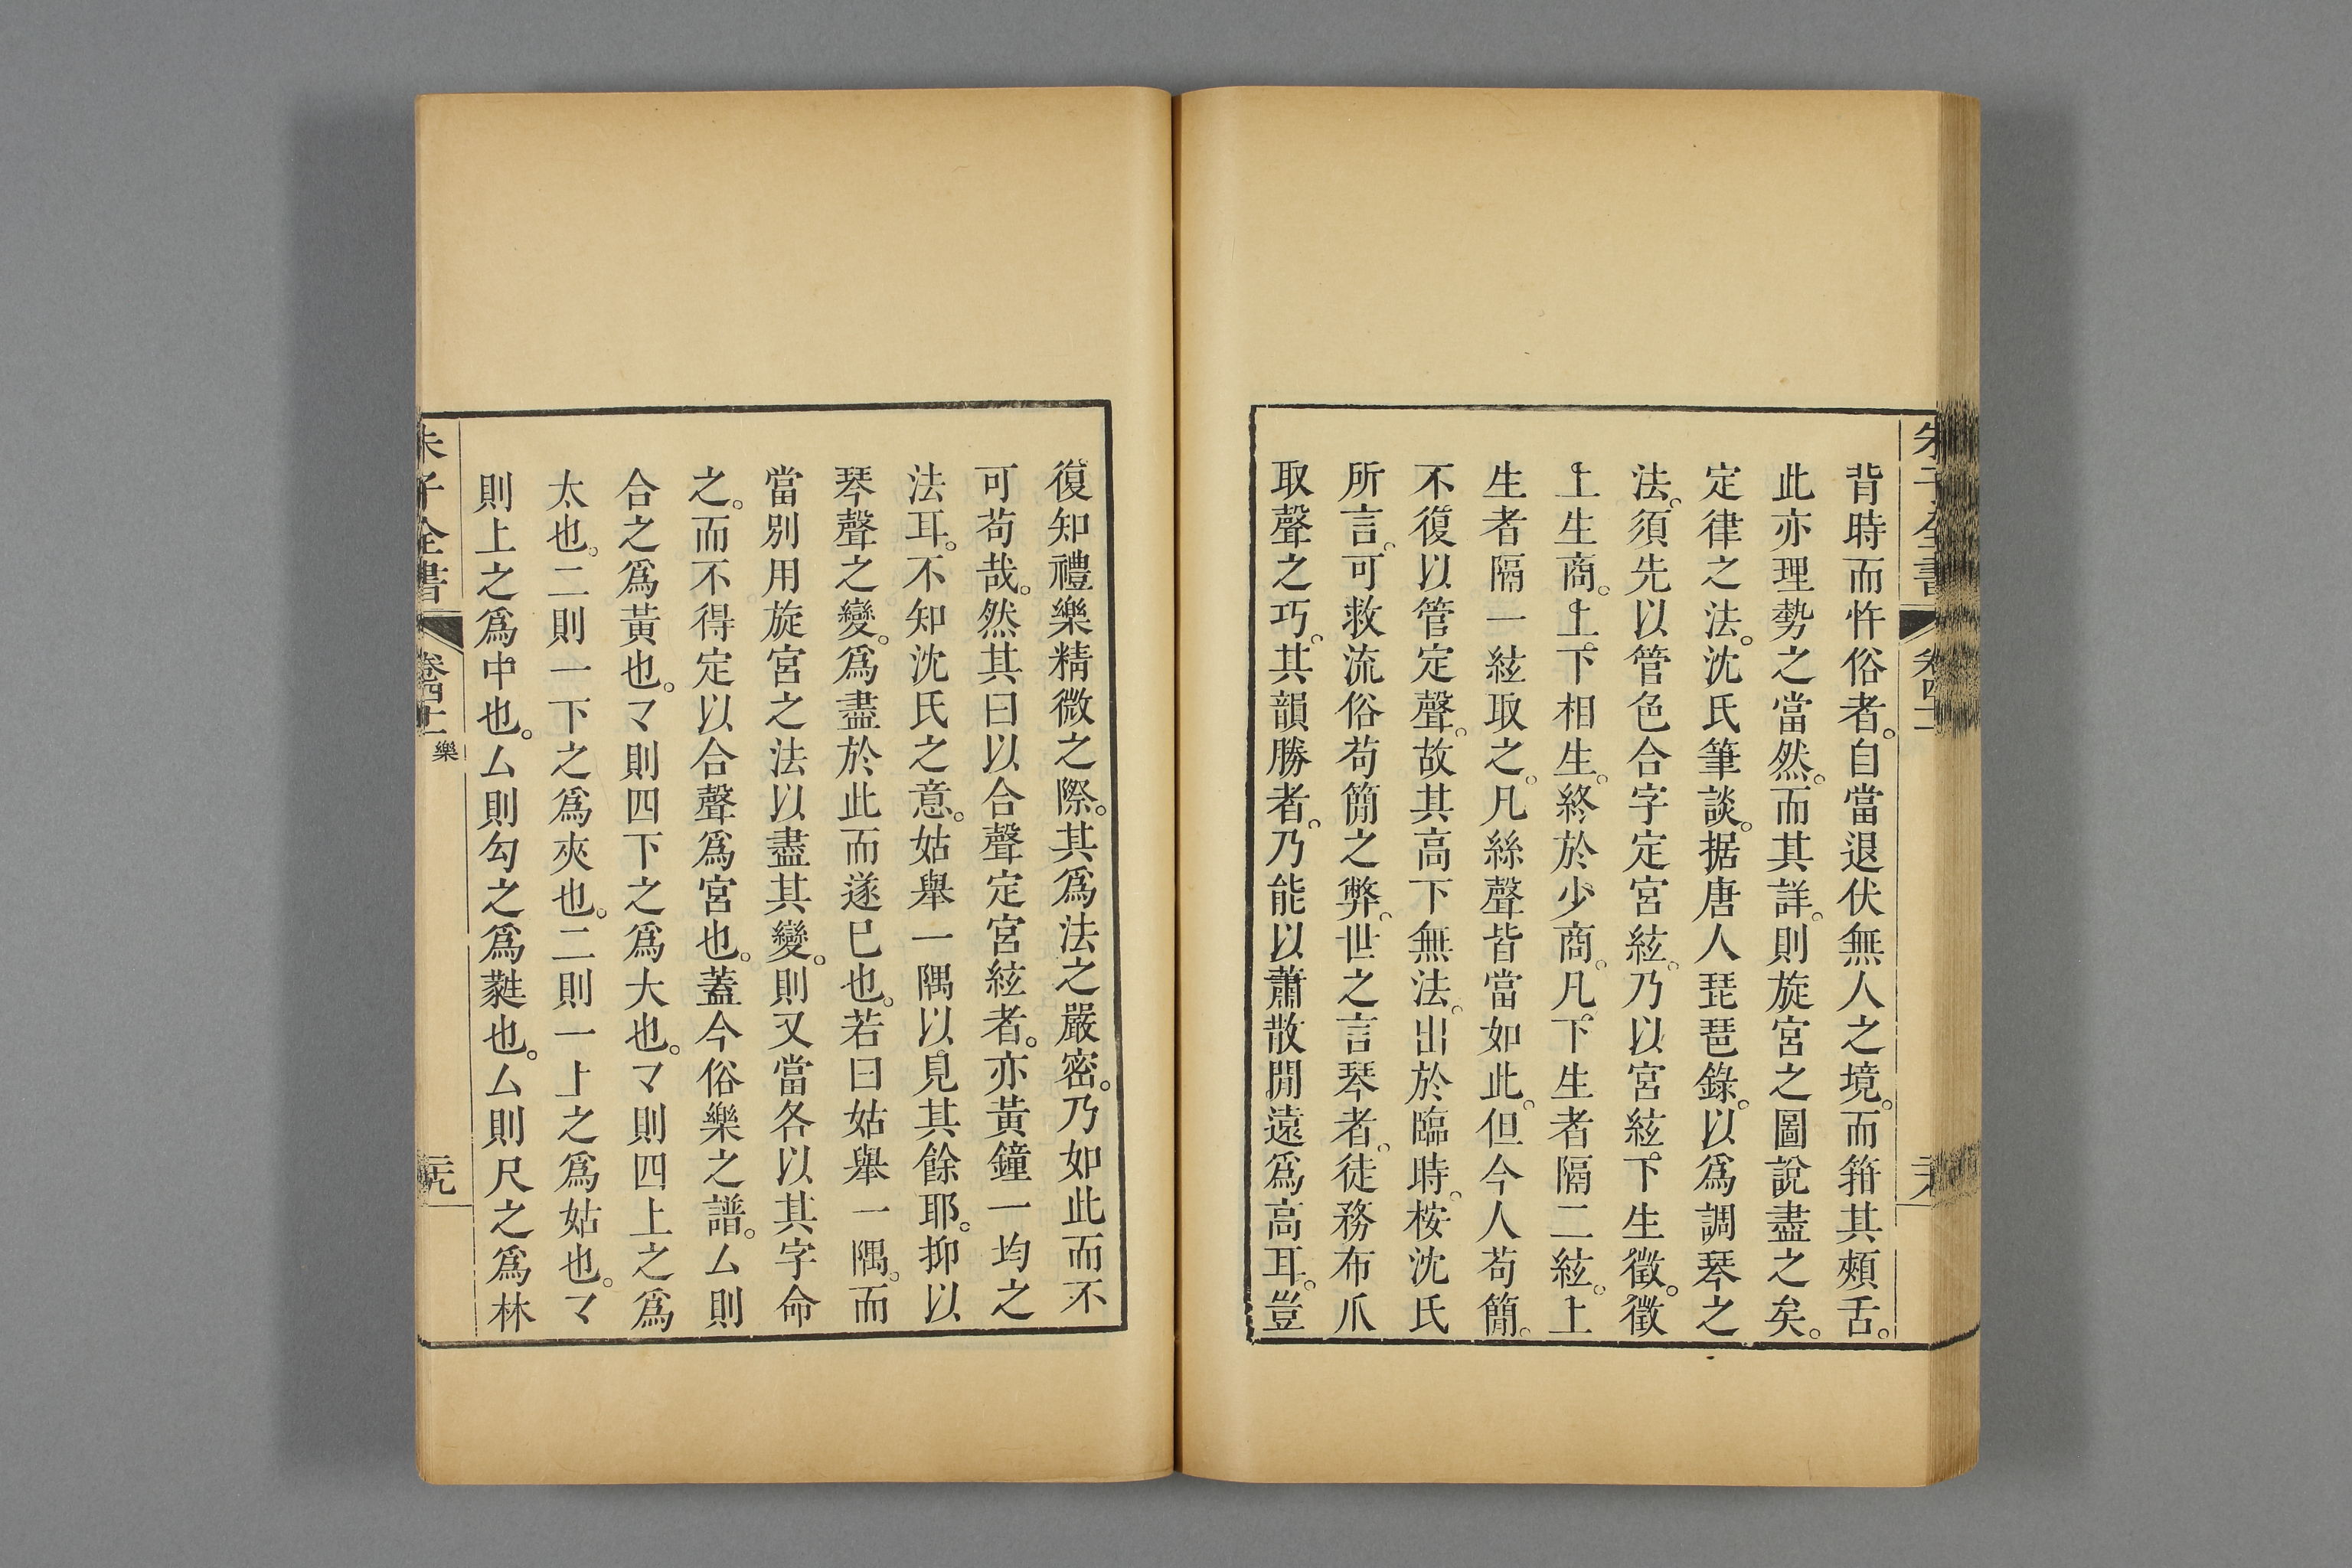 朱子全書
卷四十一
背時而忤俗者。自當退伏無人之境。而箝其頰舌。
此亦理勢之當然。而其詳。則旋宮之圖說盡之矣。
定律之法。沈氏筆談。据唐人琵琶錄。以爲調琴之
法。須先以管色合字定宮絃。乃以宮絃下生徵。徵
上生商。上下相生。終於少商。凡下生者隔二絃。上
生者隔一絃取之。凡絲聲皆當如此。但今人苟簡。
不復以管定聲。故其高下無法。出於臨時。桉沈氏
所言。可救流俗苟簡之弊。世之言琴者。徒務布爪
取聲之巧。其韻勝者。乃能以蕭散閒遠爲高耳。豈
復知禮樂精微之際。其爲法之嚴密。乃如此而不
可苟哉。然其曰以合聲定宮絃者。亦黃鐘一均之
法耳。不知沈氏之意。姑舉一隅以見其餘耶。抑以
琴聲之變。爲盡於此而遂已也。若曰姑舉一隅。而
當別用旋宮之法以盡其變。則又當各以其字命
之。而不得定以合聲爲宮也。蓋今俗樂之譜。厶則
合之爲黃也。マ則四下之爲大也。マ則四上之爲
太也。二則一下之爲夾也。二則一上之爲姑也。マ
則上之爲中也。厶則勾之爲蕤也。厶則尺之爲林
朱子全書
卷四十一
樂
二九